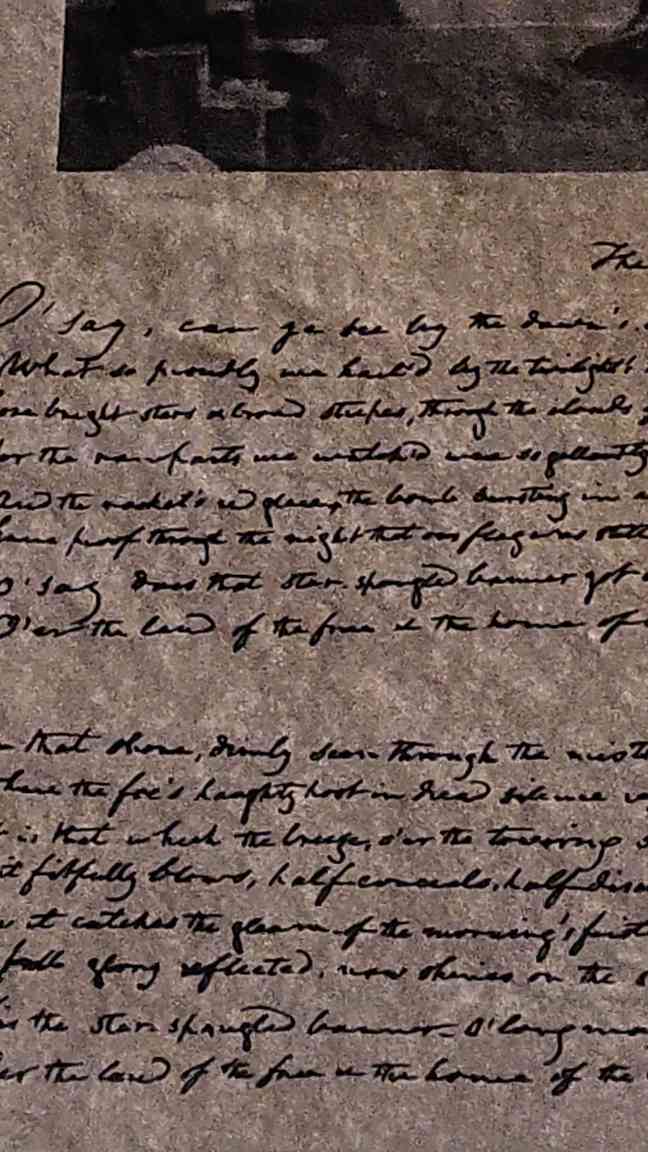 The
O' say, can ye see by the dawn's
What so proudly we hail'd by the twilight's
bright stars & broad stripes, through the clouds
or the ramparts we watch'd were so gallantly
And the rocket's red glare, the bomb bursting in
proof through the night that our flag was still
O' say does that star-spangled banner yet
O'er the land of the free & the home of
that shore, dimly seen through the mists
where the foe's haughty host in dread silence
is that which the breeze, o'er the towering
it fitfully blows, half conceals, half
it catches the gleam of the morning's first
full glory reflected, now shines on the
the star-spangled banner - O' long may
er the land of the free & the home of the